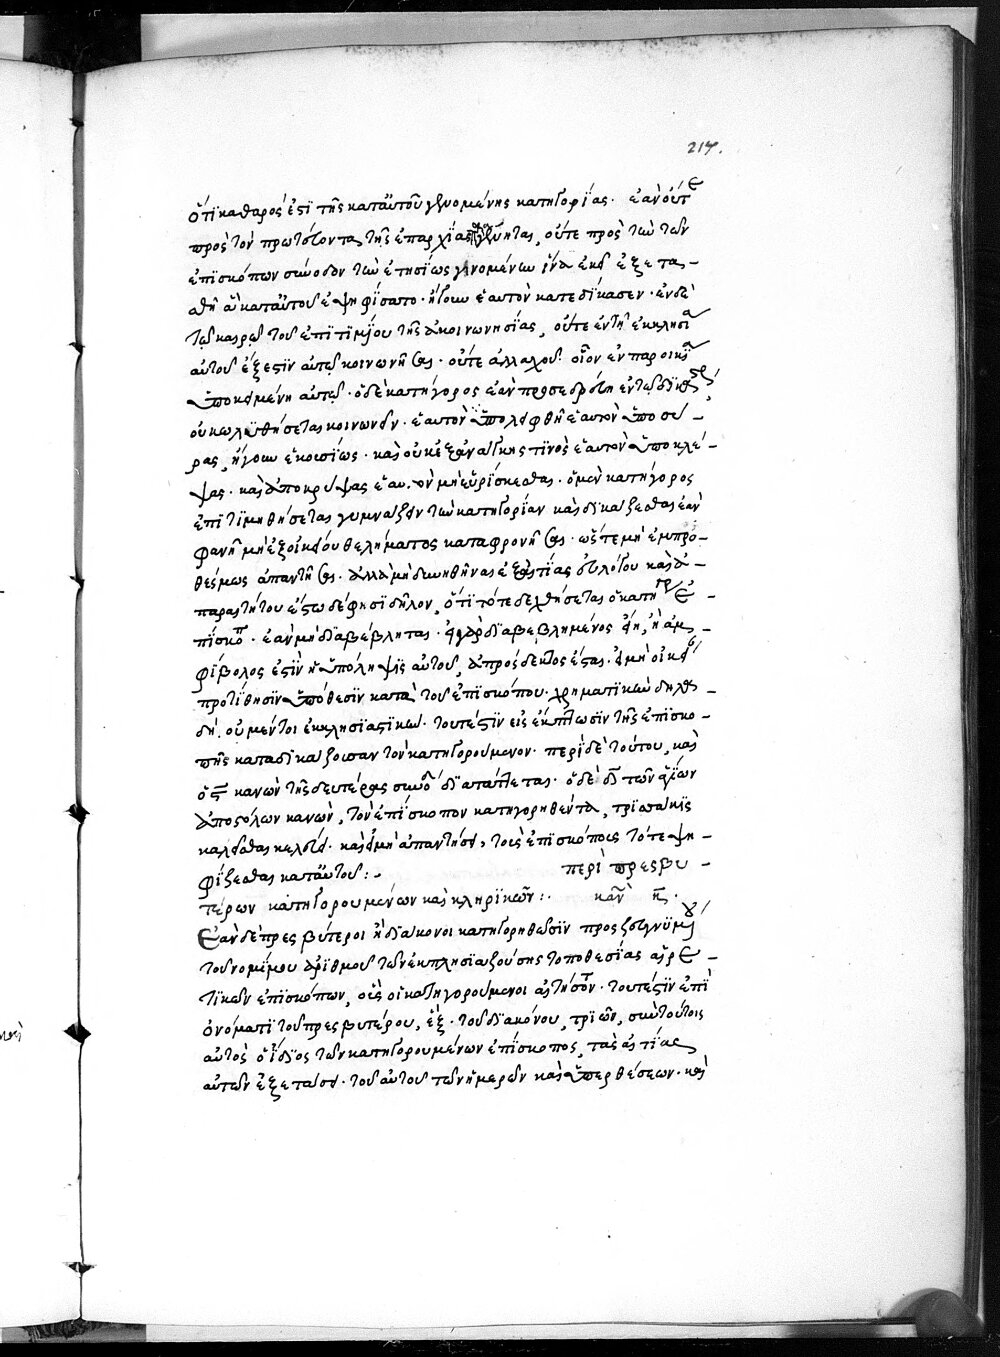 217.
ὅτι καθαρός ἐστι τῆς κατ' αὐτοῦ γενομένης κατηγορίας. ἐὰν οὔτε
πρὸς τὸν πρωτεύοντα τῆς ἐπαρχίας γένηται, οὔτε πρὸς τὴν τῶν
ἐπισκόπων σύνοδον τὴν ἐτησίως γινομένην ἵνα ἐκεῖ ἐξετασ-
θῇ ἃ κατ' αὐτοῦ ἐψηφίσατο. ἤγουν ἑαυτὸν κατεδίκασεν. ἐν δὲ
τῷ καιρῷ τοῦ ἐπιτιμίου τῆς ἀκοινωνησίας, οὔτε ἐν τῇ ἐκκλησίᾳ
αὐτοῦ ἔξεστιν αὐτῷ κοινωνῆσαι. οὔτε ἀλλαχοῦ. οἷον ἐν παροικίᾳ
ὑποκειμένῃ αὐτῷ. ὁ δὲ κατήγορος ἐὰν προσεδρεύῃ ἐν τῷ
οὐ κωλυθήσεται κοινωνεῖν. ἑαυτὸν
ἤγουν ἑκουσίως. καὶ οὐκ ἐξ ἀνάγκης τινὸς ἑαυτὸν ὑποκλέ-
ψας. καὶ ἀποκρύψας ἑαυτὸν μὴ εὑρίσκεσθαι. ὁ μὲν κατήγορος
ἐπιτιμηθήσεται γυμνάζειν τὴν κατηγορίαν καὶ δικάζεσθαι ἐὰν
φανῇ μὴ ἐξ οἰκείου θελήματος καταφρονῆσαι. ὥστε μὴ ἐμπρο-
θέσμως ἀπαντῆσαι. ἀλλὰ μὴ δυνηθῆναι ἐξ αἰτίας εὐλόγου καὶ ἀ-
παραιτήτου ἔξω δέ φησι δῆλον, ὅτι τότε δεχθήσεται ὁ κατήγορος ἐ-
πίσκοπ. ἐὰν μὴ διαβέβληται. εἰ γὰρ διαβεβλημένος ἐστὶν, ἢ ἀμ-
φίβολος ἐστὶν ἡ ὑπόληψις αὐτοῦ, ἀπρόσδεκτος ἔσται. εἰ μὴ οἰκείαν
προτίθησιν ὑπόθεσιν κατὰ τοῦ ἐπισκόπου. χρηματικὴν δηλα-
δή. οὐ μέντοι ἐκκλησιαστικήν. τουτέστιν εἰς ἔκπτωσιν τῆς ἐπισκο-
πῆς καταδικάζουσαν τὸν κατηγορούμενον. περὶ δὲ τούτου, καὶ
ὁ ς κανὼν τῆς δευτέρας συνόδ διαπλάττεται. ὁ δὲ οδ τῶν ἁγίων
ἀποστόλων κανὼν, τὸν ἐπίσκοπον κατηγορηθέντα, τρίτον
καλεῖσθαι κελεύει. καὶ εἰ μὴ ἀπαντήσει, τοὺς ἐπισκόπους τότε ψη-
φίζεσθαι κατ' αὐτοῦ:- περὶ πρεσβυ-
τέρων κατηγορουμένων καὶ κληρικῶν:. κανὼν κ.
Ἐὰν δὲ πρεσβύτεροι ἢ διάκονοι κατηγορηθῶσιν προσζευγνυμένου
τοῦ νομίμου ἀριθμοῦ τῶν ἐκ πλησιαζούσης τοποθεσίας αἱρε-
τικῶν ἐπισκόπων, οὓς οἱ κατηγορούμενοι αἰτήσονται. τουτέστιν ἐπὶ
ὀνόματι τοῦ πρεσβυτέρου, ἕξ. τοῦ διακόνου, τριῶν, σὺν τούτοις
αὐτὸς ὁ ἴδιος τῶν κατηγορουμένων ἐπίσκοπος, τὰς αἰτίας
αὐτῶν ἐξετάσει. τοῦ αὐτοῦ τῶν ἡμερῶν καὶ ὑπερθέσεων. καὶ